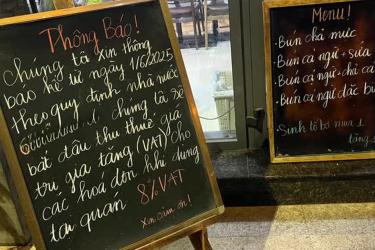 Thông Báo!
Chúng tã xin thông
báo kể từ ngày 1/6/2025
theo quy định nhà nước
chúng tã sẽ
bắt đầu thu thuế giá
trị gia tăng (VAT) cho
các hoá đơn khi dùng
tại quán 8% VAT
Xin cảm ơn!
Menu!
• Bún chả mực
• Bún cá ngừ + sứa
• Bún cá ngừ + chả cá
• Bún cá ngừ đặc bi
Sinh tố bơ mua 1
tặng